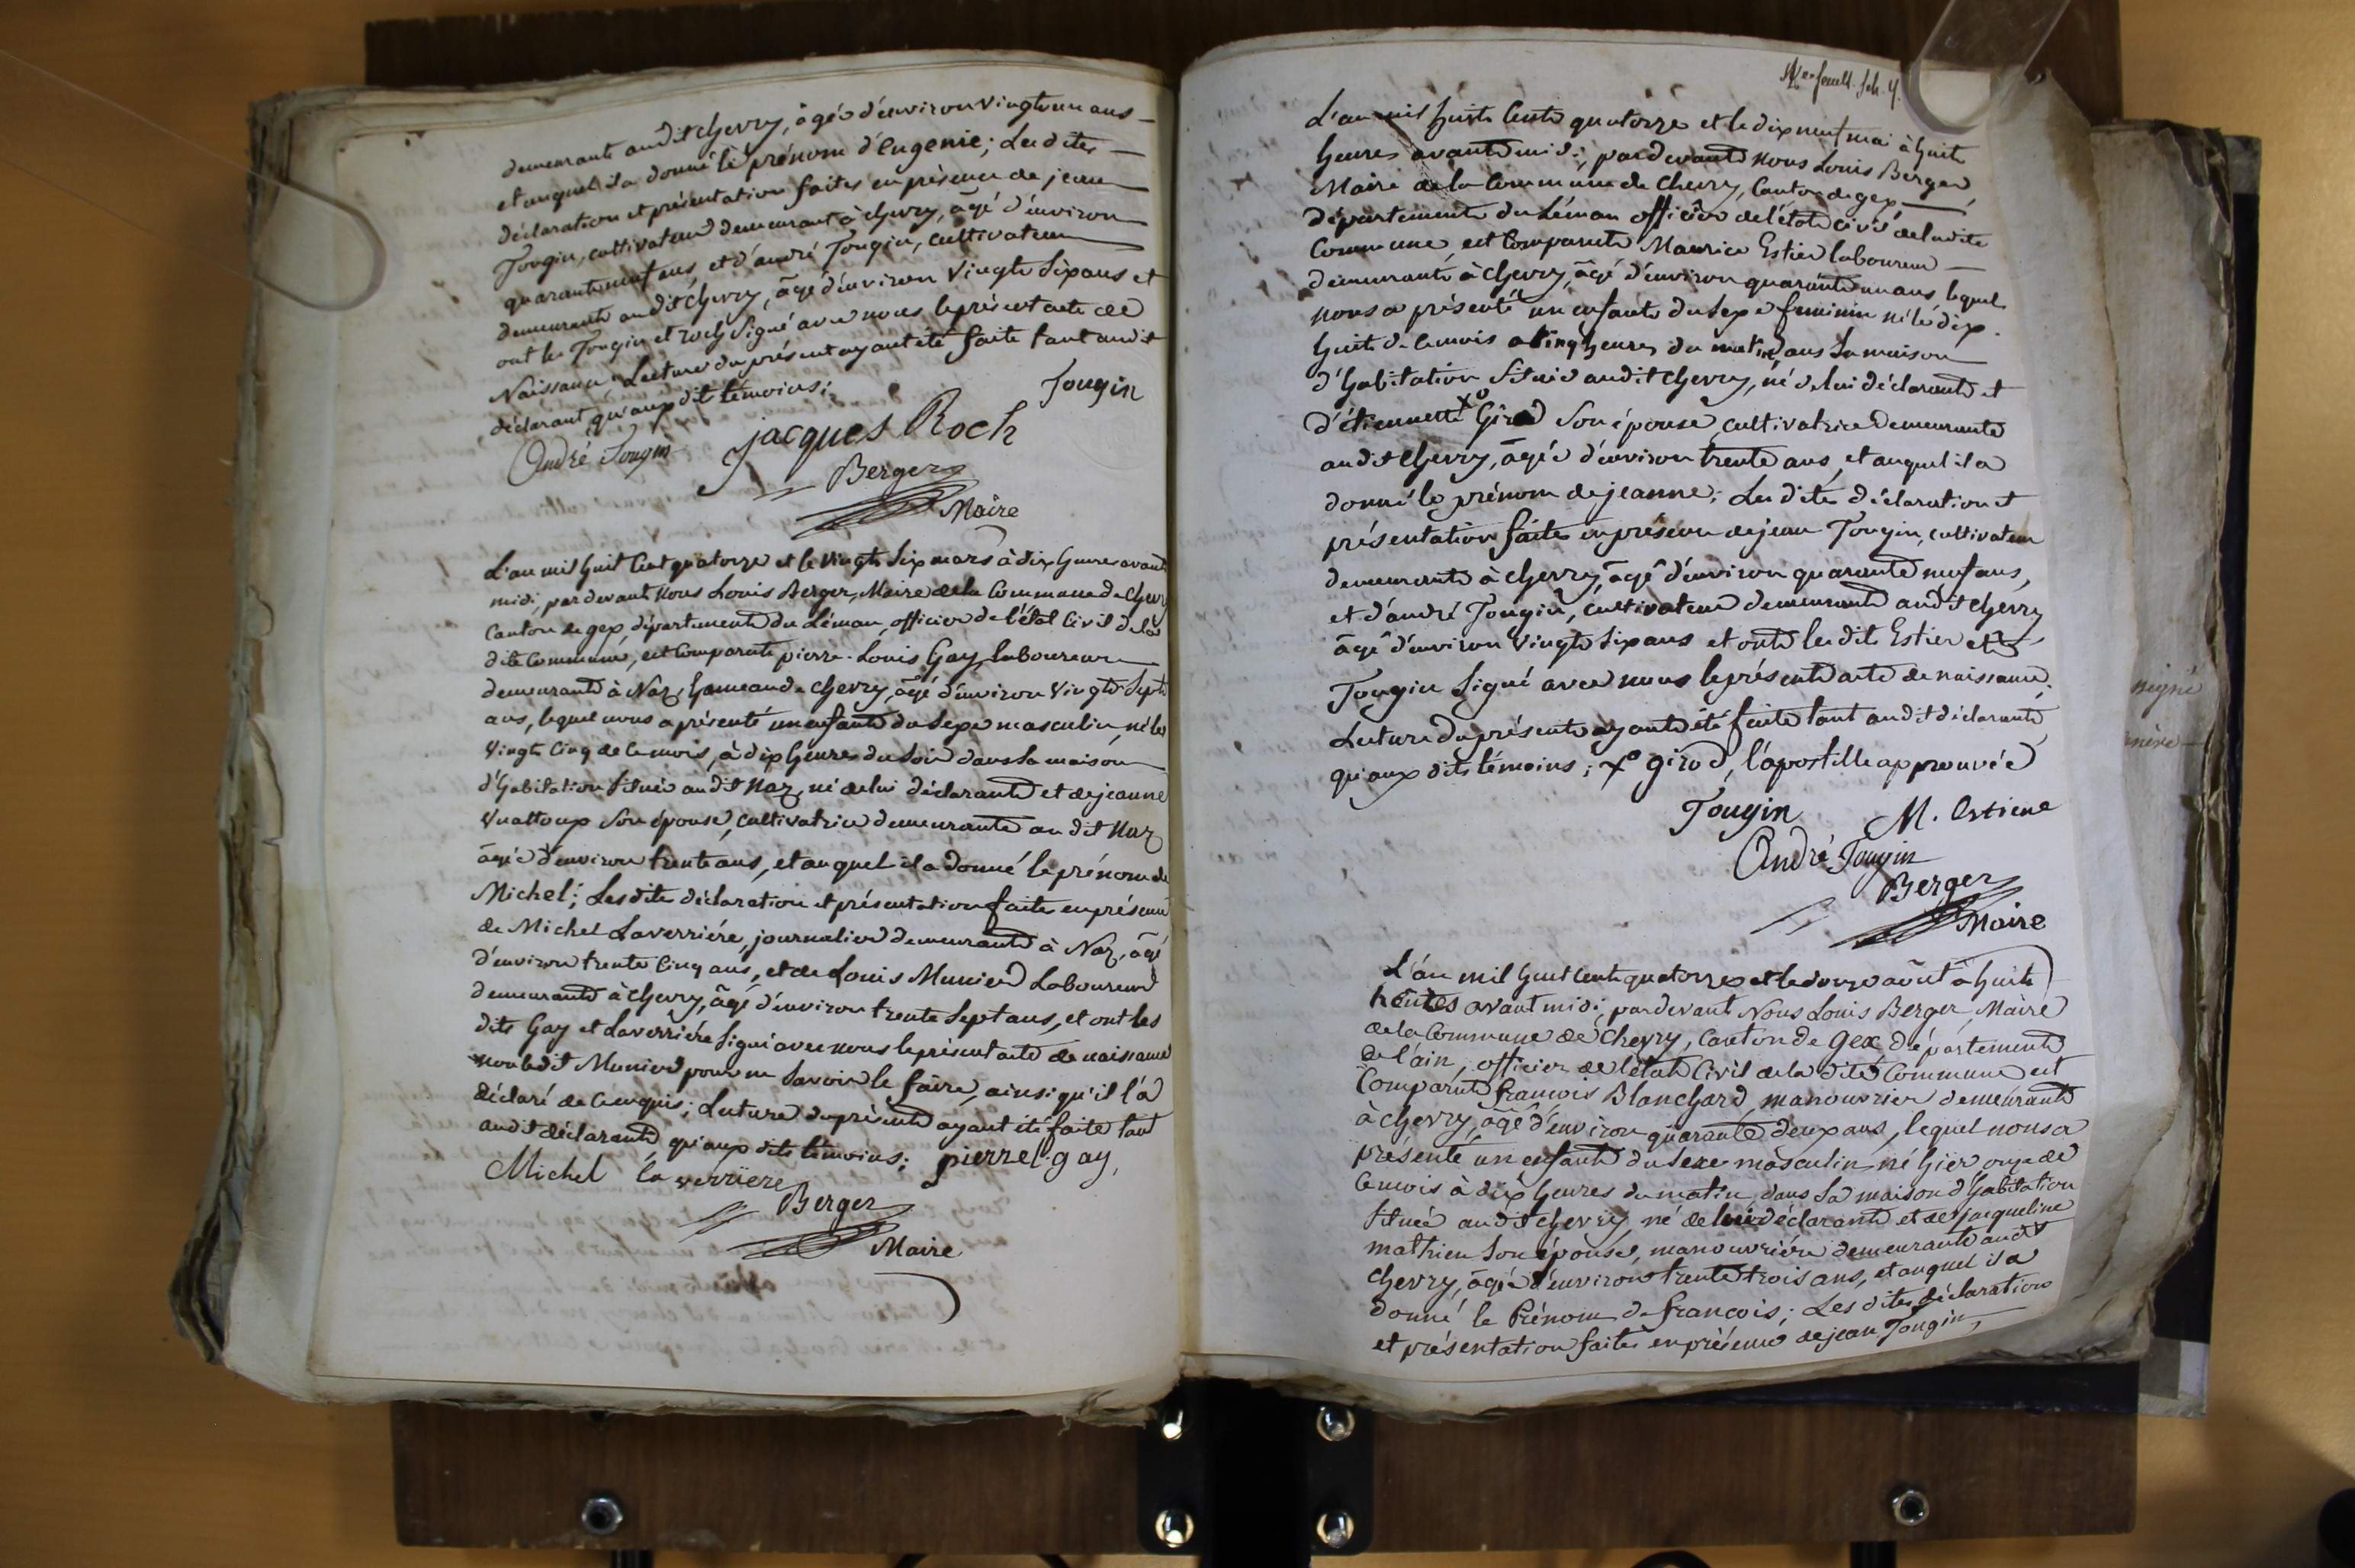 demeurante audit chevry, âgée d'environ vingt un ans
et auquel il a donné le prénom d'Eugenie; Les dites
déclaration et présentation faites en présence de jean
Tougin, cultivateur demeurant à chevry, âgé d'environ
quarante neuf ans, et d'andré Tougin, cultivateur
demeurante audit chevry, âgé d'environ vingt six ans et
ont les Tougin et roch signé avec nous le présent acte de
Naissance Lecture du présent ayant été faite tant audit
déclarant qu'aux dits témoins;
Tougin
André Tougin
jacques Roch
Berger
Maire
L'an mil huit cent quatorze et le vingt six mars à dix heures avant
midi, par devant Nous Louis Berger, Maire de la Commune de chevry
Canton de gex, département du Léman, officier de l'état civil de la
dite Commune, est Comparut pierre-Louis Gay, laboureur
demeurante à Naz, hameau de chevry, âgé d'environ vingt sept
ans, lequel nous a présenté un enfant du sexe masculin, né le
vingt cinq de ce mois, à dix heures du soir dans sa maison
d'habitation située audit Naz, né de lui déclarant et de jeanne
Vuattoux son épouse, cultivatrice demeurante au dit Naz
âgée d'environ trente ans, et auquel il a donné le prénom de
Michel; Les dites déclaration et présentation faites en présence
de Michel Laverriére, journalier demeurante à Naz, âgé
d'environ trente cinq ans, et de Louis Munier Laboureur
demeurante à chevry, âgé d'environ trente sept ans, et ont les
dits Gay et Laverriére signé avec nous le présent acte de naissance
non ledit Munier pour ne savoir le faire, ainsi qu'il l'a
déclaré de ce enquis; Lecture du présent ayant été faite tant
audit déclarant qu'aux dits témoins;
pierre l. gay,
Michel la verriere
Berger
Maire
L'an mil huit cent quatorze et le dix neuf mai à huit
heures avant midi; par devant Nous Louis Berger,
Maire de la Commune de chevry, Canton de gex
département du Léman officier de l'état civil de la dite
Commune, est Comparut Maurice Estier laboureur
demeurante à chevry, âgé d'environ quarante un ans lequel
nous a présenté un enfant du sexe feminin né le dix
huit de ce mois a cinq heures du matin dans sa maison
d'habitation située audit chevry, né de lui déclarant et
d'étiennette X° Girod son épouse, cultivatrice demeurante
audit chevry, âgée d'environ trente ans, et auquel il a
donné le prénom de jeanne; Les dites déclaration et
présentation faites en présence de jean Tougin, cultivateur
demeurante à chevry, âgé d'environ quarante neuf ans,
et d'andré Tougin, cultivateur demeurante audit chevry
âgé d'environ vingt six ans et ont les dits Estier et
Tougin signé avec nous le présent acte de naissance;
Lecture du présent ayant été faite tant audit déclarant
qu'aux dits témoins; X° girod, l'apostille approuvée
Tougin
M. Estiene
André Tougin
Berger
Maire
L'an mil huit cent quatorze et le douze août à huit
heures avant midi; par devant Nous Louis Berger, Maire
de la Commune de chevry, Canton de Gex département
de l'ain, officier de l'état Civil de la dite Commune est
Comparut françois Blanchard, manouvrier demeurante
à chevry, âgé d'environ quarante deux ans, lequel nous a
présenté un enfant du sexe masculin né hier onze de
ce mois à dix heures du matin, dans sa maison d'habitation
située audit chevry, né de lui déclarant et de jacqueline
mathieu son épouse, manouvriére demeurante audit
chevry, âgée d'environ trente trois ans, et auquel il a
donné le Prénom de françois; Les dites déclaration
et présentation faites en présence de jean Tougin,